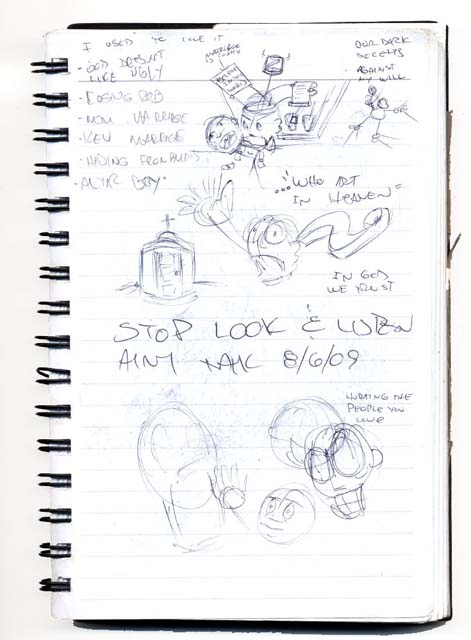 I USED TO LOVE IT
• GOD DOESN'T
LIKE UGLY
• LOSING ROB
• MOM
• KEV MARRIAGE
• HIDING FROM
• ALTAR BOY •
MARRIAGE
OUR DARK
SECRETS
AGAINST
MY WILL
..."WHO ART
IN HEAVEN"
IN GOD
WE TRUST
STOP LOOK &
8/6/09
HURTING THE
PEOPLE YOU
LOVE